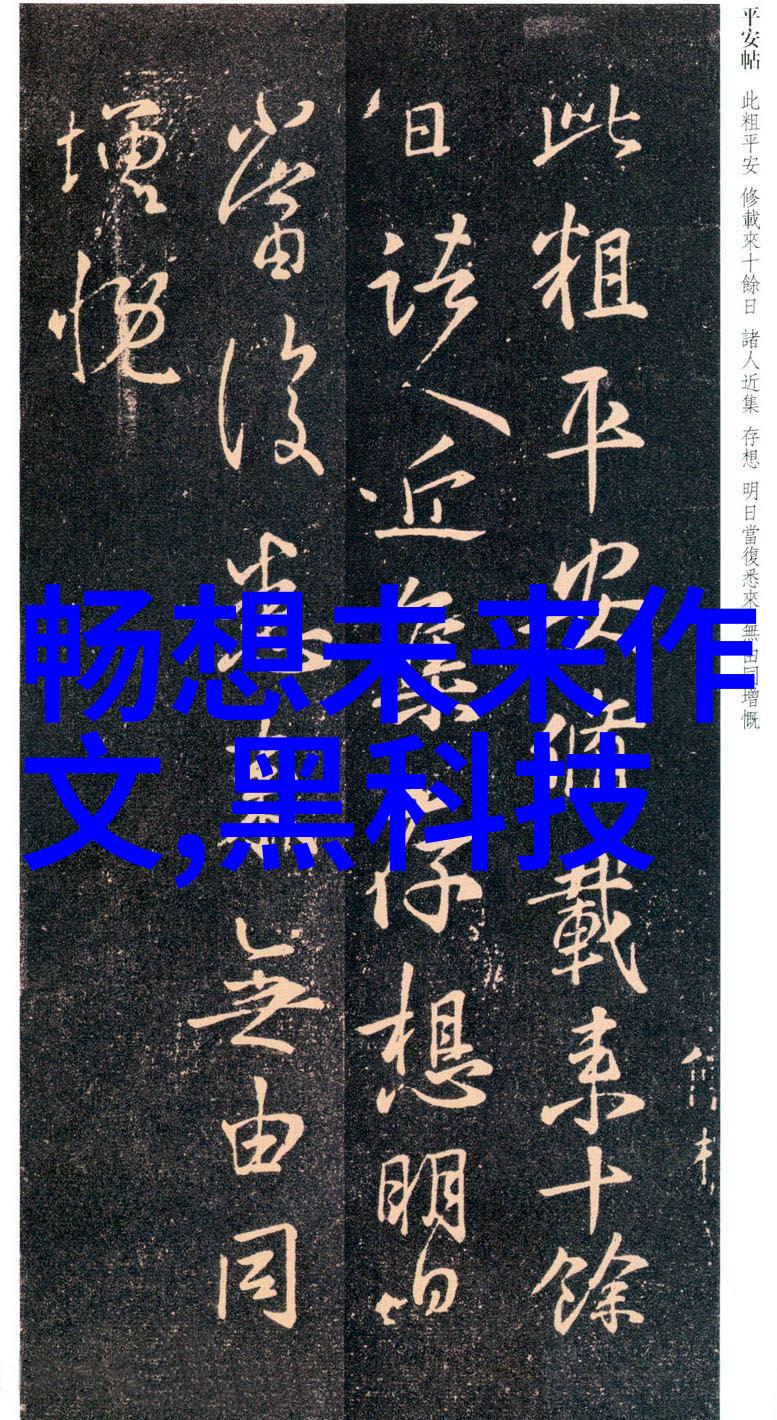 平安帖 此粗平安 修載來十餘日 諸人近集 存想 明日當復悉來 無由同增慨
此粗平安脩載来十餘
日諸人近集存想明日
當復悉来無由同
增慨
畅想未来作
文,黑科技